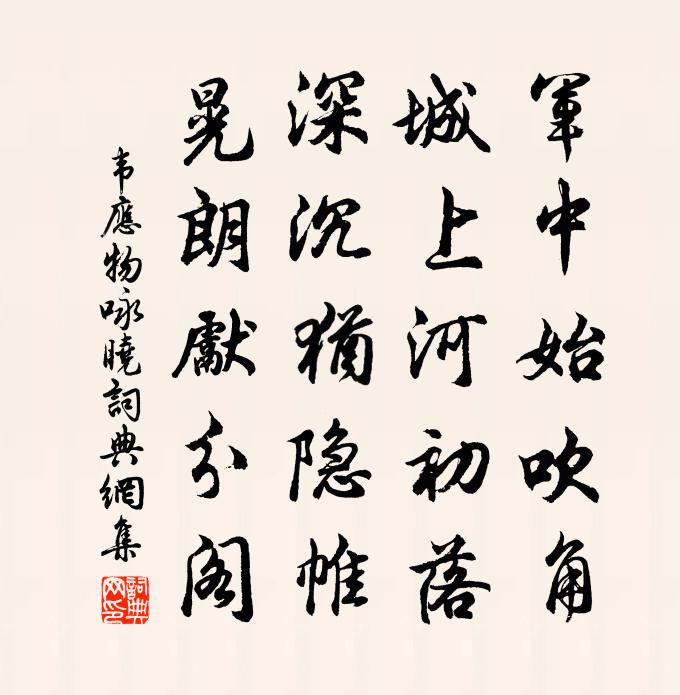 軍中始吹角
城上河初落
深沉猶隐帷
晃朗獻分阁
韦應物咏曉詞典網集
詞典
网印